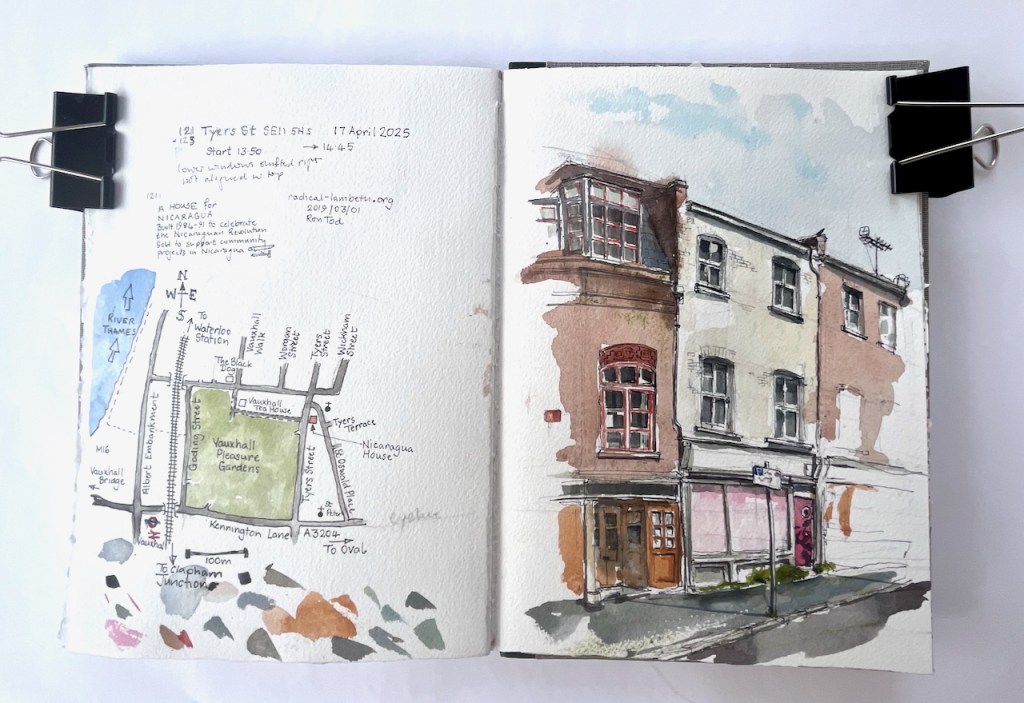 121 Tyers St SE11 5HS 17 April 2025
+123
Start 13:50 → 14:45
lower windows shifted right
not aligned w top
121:
A HOUSE for
NICARAGUA
Built 1984-91 to celebrate
the Nicaraguan Revolution
Sold to support community
projects in Nicaragua
radical-lambeth.org
2019/03/01
Ron Tod
N
W E
S
RIVER
THAMES
To
Waterloo
Station
Vauxhall
Walk
Worgan
Street
Tyers
Street
Wickham
Street
The Black
Dog
Vauxhall
Tea House
Tyers
Terrace
Nicaragua
House
Albert Embankment
Goding Street
Vauxhall
Pleasure
Gardens
Tyers Street
St Oswald's Place
MI6
Vauxhall
Bridge
St
Peter
Vauxhall
Kennington Lane
A3204
To Oval
100m
To Clapham
Junction